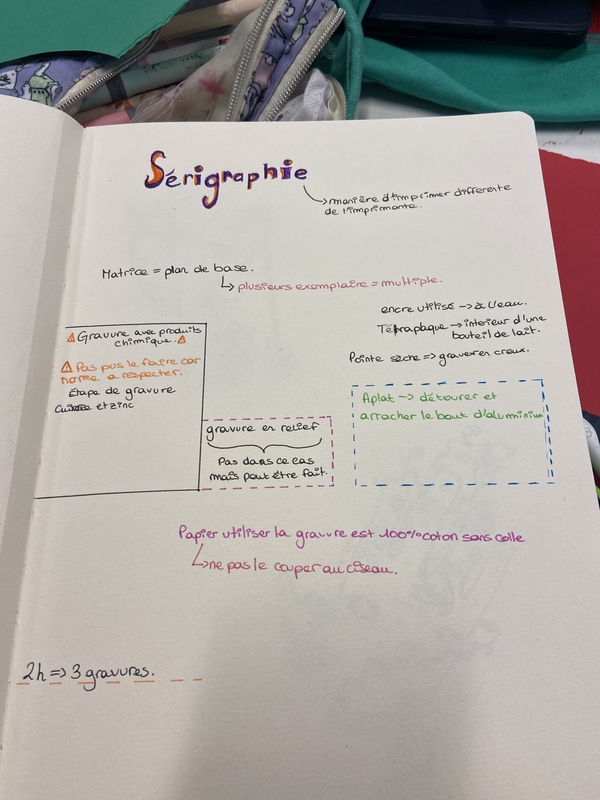 Sérigraphie
manière d'imprimer differente
de l'imprimante.
Matrice = plan de base.
plusieurs exemplaire = multiple.
encre utilisé → à l'eau.
Tétrapaque → interieur d'une
bouteil de lait.
Pointe sèche => graver en creux.
⚠ Gravure avec produits
chimique. ⚠
⚠ Pas pus le faire car
norme a respecter.
Étape de gravure
et zinc
Aplat → détourer et
arracher le bout d'aluminium
gravure en relief
Pas dans ce cas
mais peut être fait.
Papier utiliser la gravure est 100% coton sans colle
ne pas le couper au ciseau.
2h => 3 gravures.